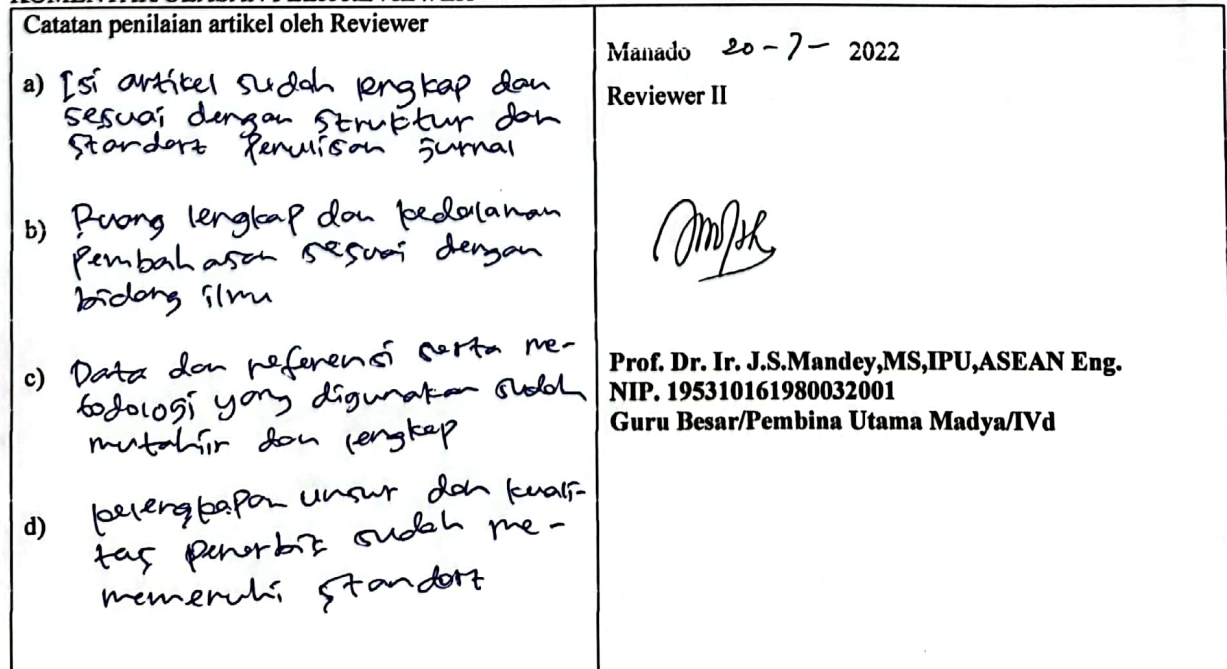 Catatan penilaian artikel oleh Reviewer
a) Isi artikel sudah lengkap dan
sesuai dengan struktur dan
standart penulisan jurnal
b) Ruang lengkap dan kedalaman
pembahasan sesuai dengan
bidang ilmu
c) Data dan referensi serta me-
todologi yang digunakan sudah
mutahir dan lengkap
d) kelengkapan unsur dan kuali-
tas penerbit sudah me-
memenuhi standart
Manado 20-7- 2022
Reviewer II
Prof. Dr. Ir. J.S.Mandey,MS,IPU,ASEAN Eng.
NIP. 195310161980032001
Guru Besar/Pembina Utama Madya/IVd